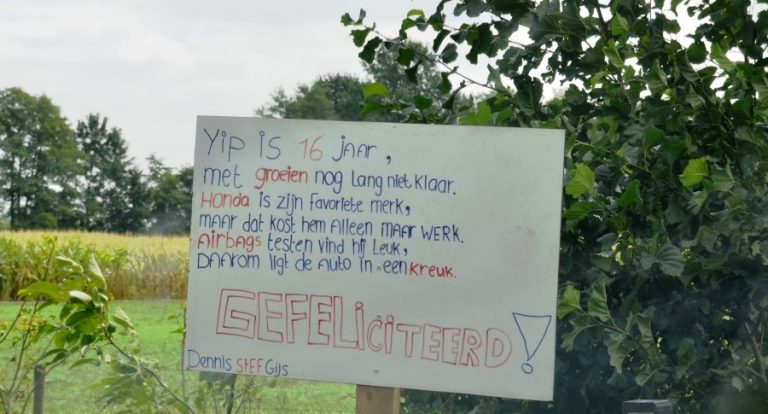 Yip is 16 jaar,
met groeien nog Lang niet klaar.
Honda is zijn favoriete merk,
maar dat kost hem Alleen maar werk.
Airbags testen vind hij Leuk,
daarom ligt de Auto in een kreuk.
GEFELiCiTEERD!
Dennis STEF Gijs